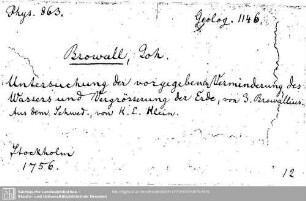 Phys. 863.
Geolog. 1146.
Browall, Joh.
Untersuchung der vorgegebenen Verminderung des
Wassers und Vergrösserung der Erde, von J. Browallius.
Aus dem Schwed. von K. E. Klein.
Stockholm
1756.
12
Sächsische Landesbibliothek -
Staats- und Universitätsbibliothek Dresden